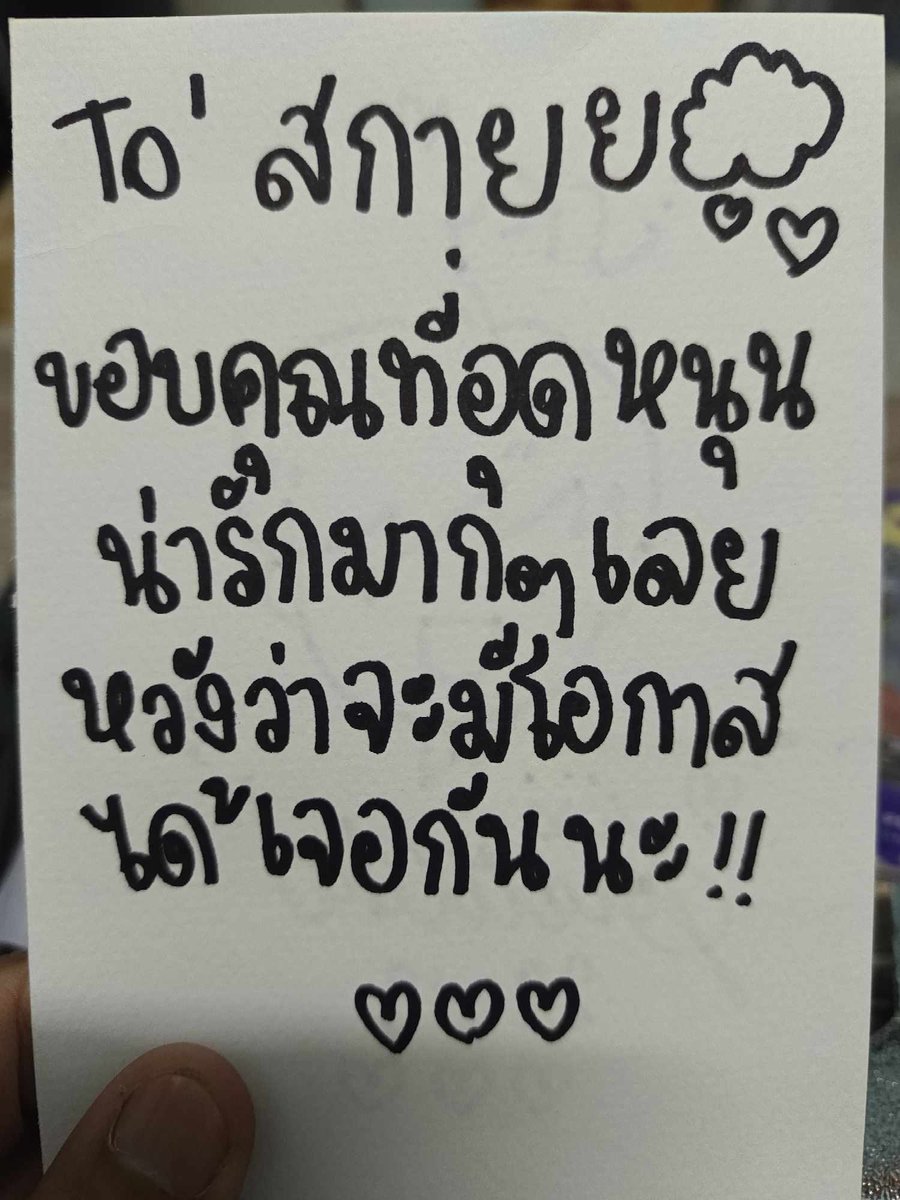 To' สกายย
ขอบคุณที่อุดหนุน
น่ารักมากๆเลย
หวังว่าจะมีโอกาส
ได้เจอกันนะ!!